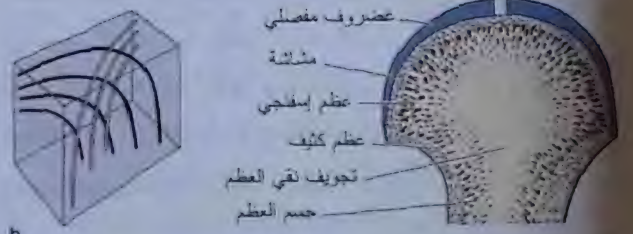 غضروف مفصلي
مشاشة
عظم إسفنجي
عظم كثيف
تجويف نقي العظم
جسم العظم
b